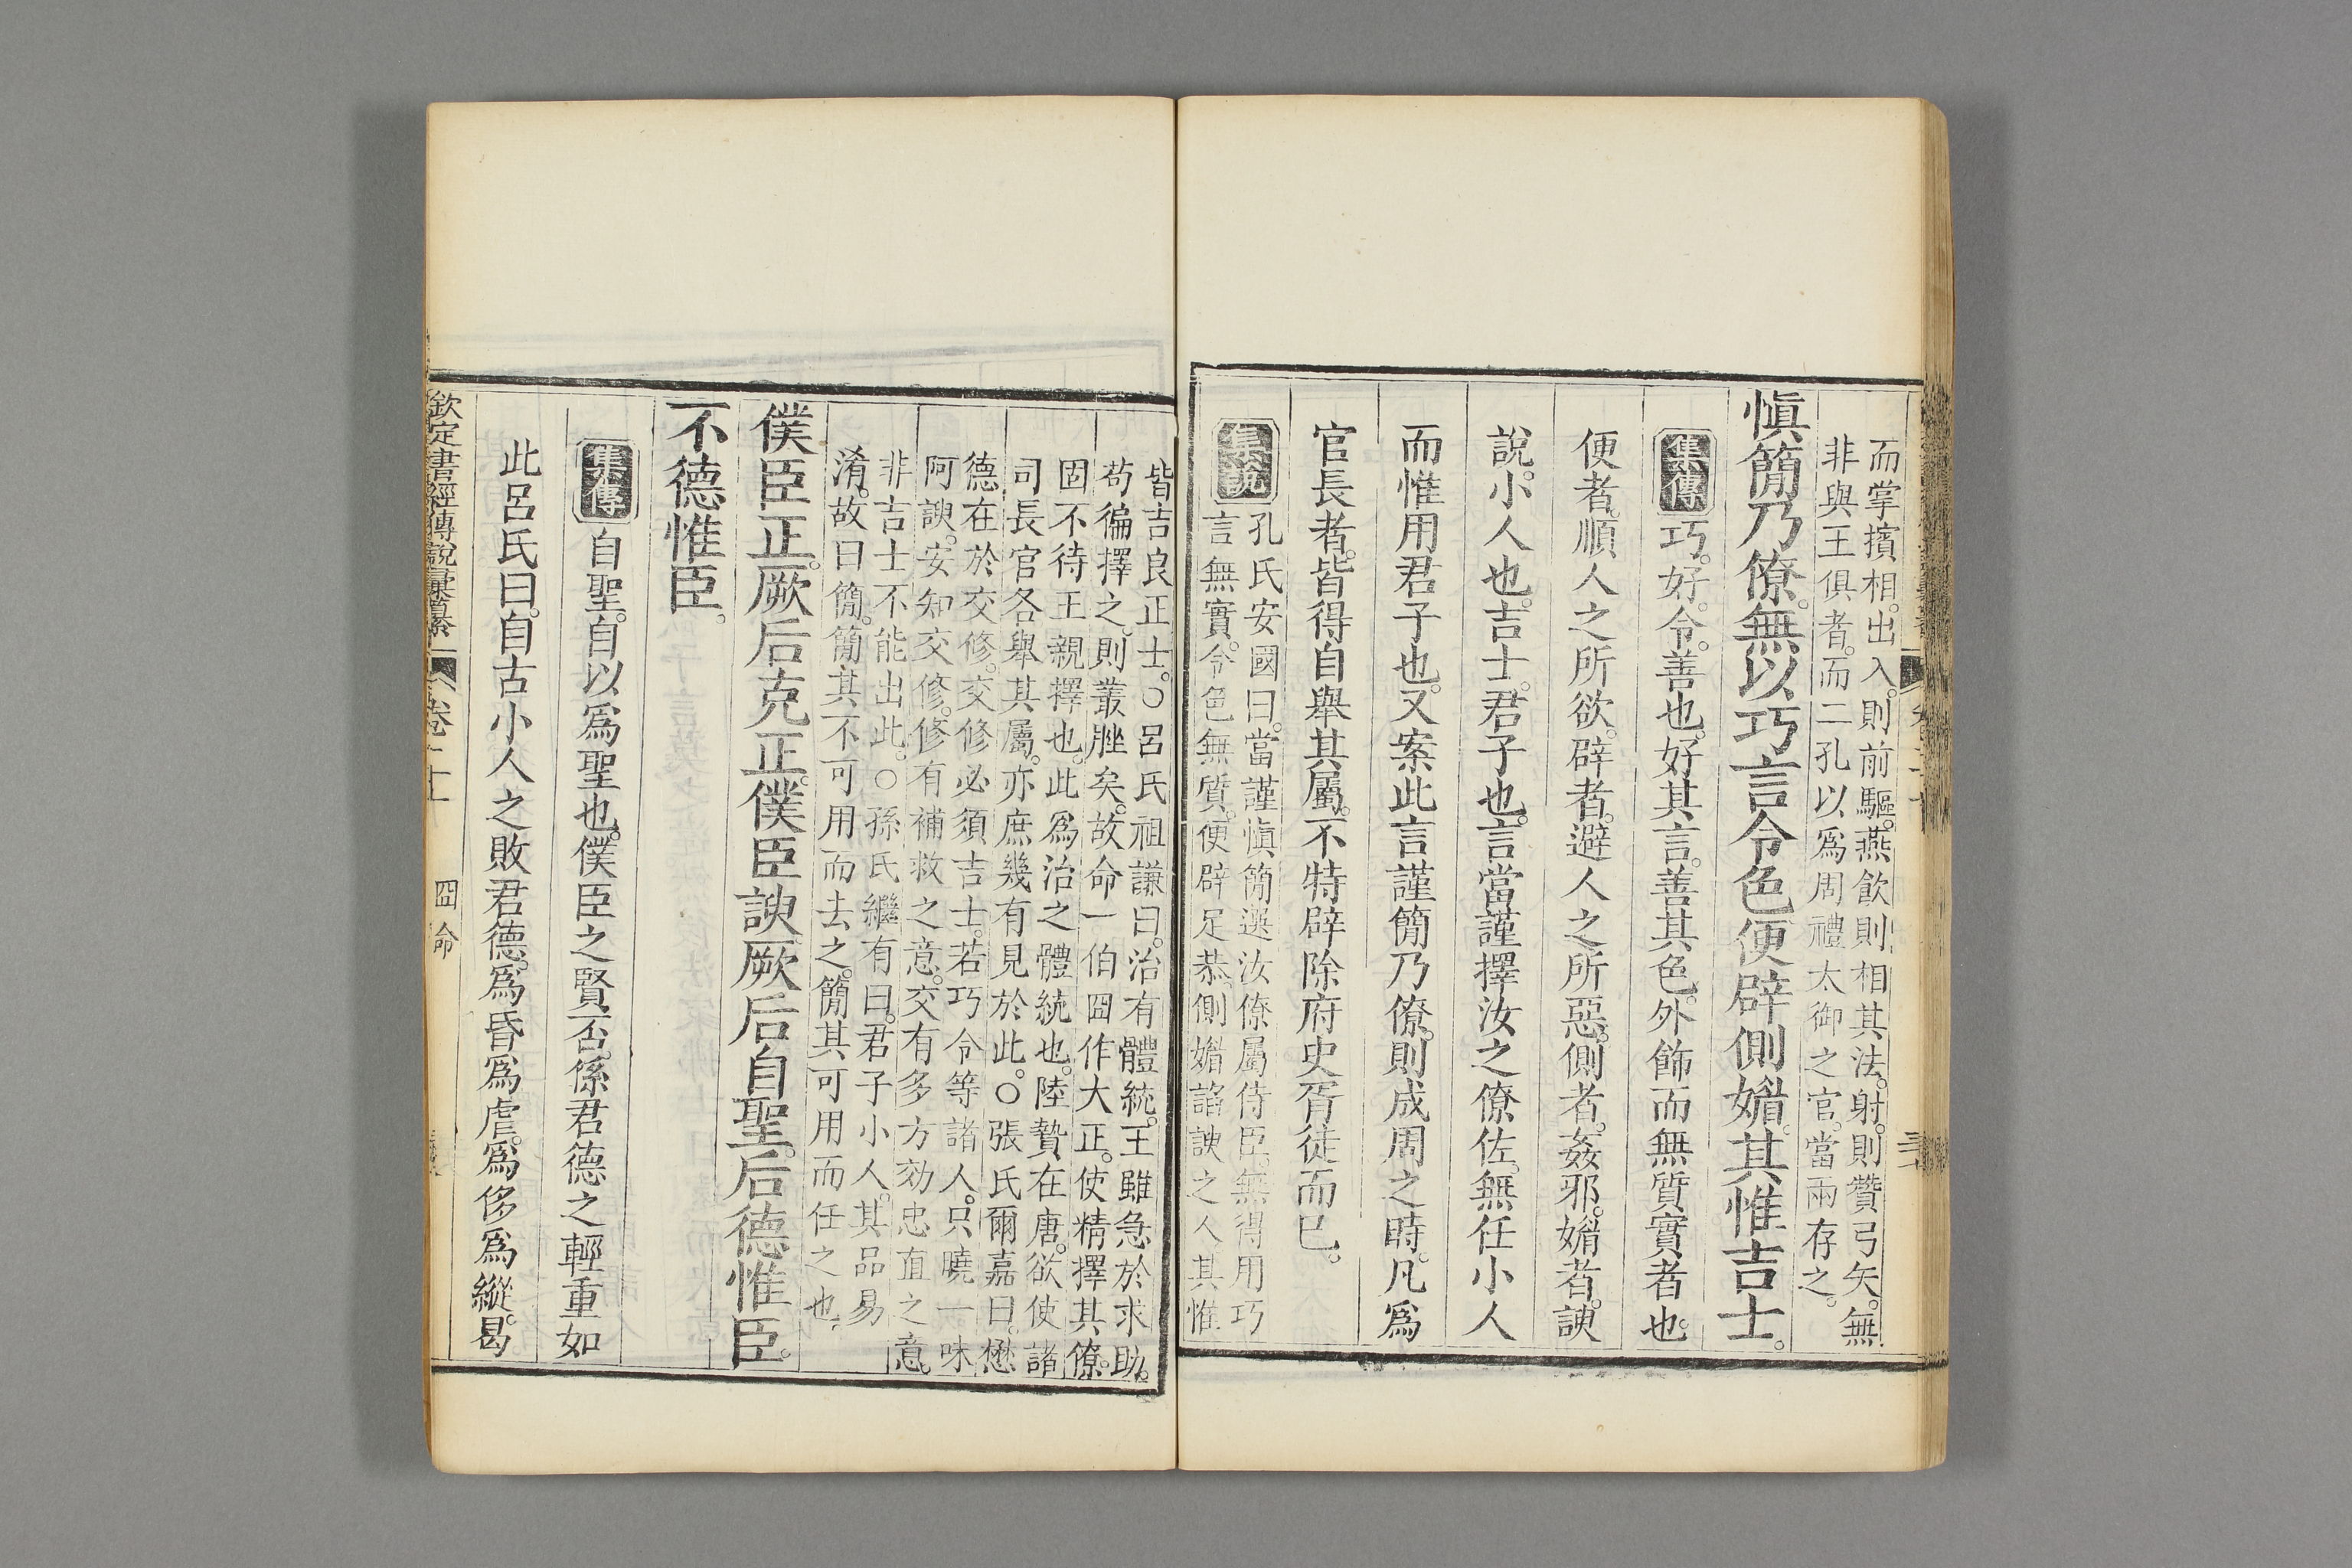 而掌擯相。出入。則前驅。燕飲則相其法。射。則贊弓矢。無
非與王俱者。而二孔以爲周禮太御之官。當兩存之。
愼簡乃僚。無以巧言令色便辟側媚。其惟吉士。
集傳 巧。好。令。善也。好其言。善其色。外飾而無質實者也。
便者。順人之所欲。辟者。避人之所惡。側者。姦邪。媚者。諛
說。小人也。吉士。君子也。言當謹擇汝之僚佐。無任小人
而惟用君子也。又案此言謹簡乃僚。則成周之時。凡爲
官長者。皆得自舉其屬。不特辟除府史胥徒而已。
集說 孔氏安國曰。當謹愼簡選汝僚屬侍臣。無得用巧
言無實。令色無質。便辟足恭。側媚諂諛之人。其惟
皆吉良正士。○呂氏祖謙曰。治有體統。王雖急於求助。
苟徧擇之。則叢脞矣。故命一伯冏作大正。使精擇其僚。
固不待王親擇也。此爲治之體統也。陸贄在唐。欲使諸
司長官各舉其屬。亦庶幾有見於此。○張氏爾嘉曰。懋
德在於交修。交修必須吉士。若巧令等諸人。只曉一味
阿諛。安知交修。修有補救之意。交有多方効忠直之意。
非吉士不能出此。○孫氏繼有曰。君子小人。其品易
淆。故曰簡。簡其不可用而去之。簡其可用而任之也。
僕臣正。厥后克正。僕臣諛。厥后自聖。后德惟臣。
不德惟臣。
集傳 自聖。自以爲聖也。僕臣之賢否。係君德之輕重如
此。呂氏曰。自古小人之敗君德。爲昏爲虐。爲侈爲縱。曷
欽定書經傳說彙纂 卷二十 冏命